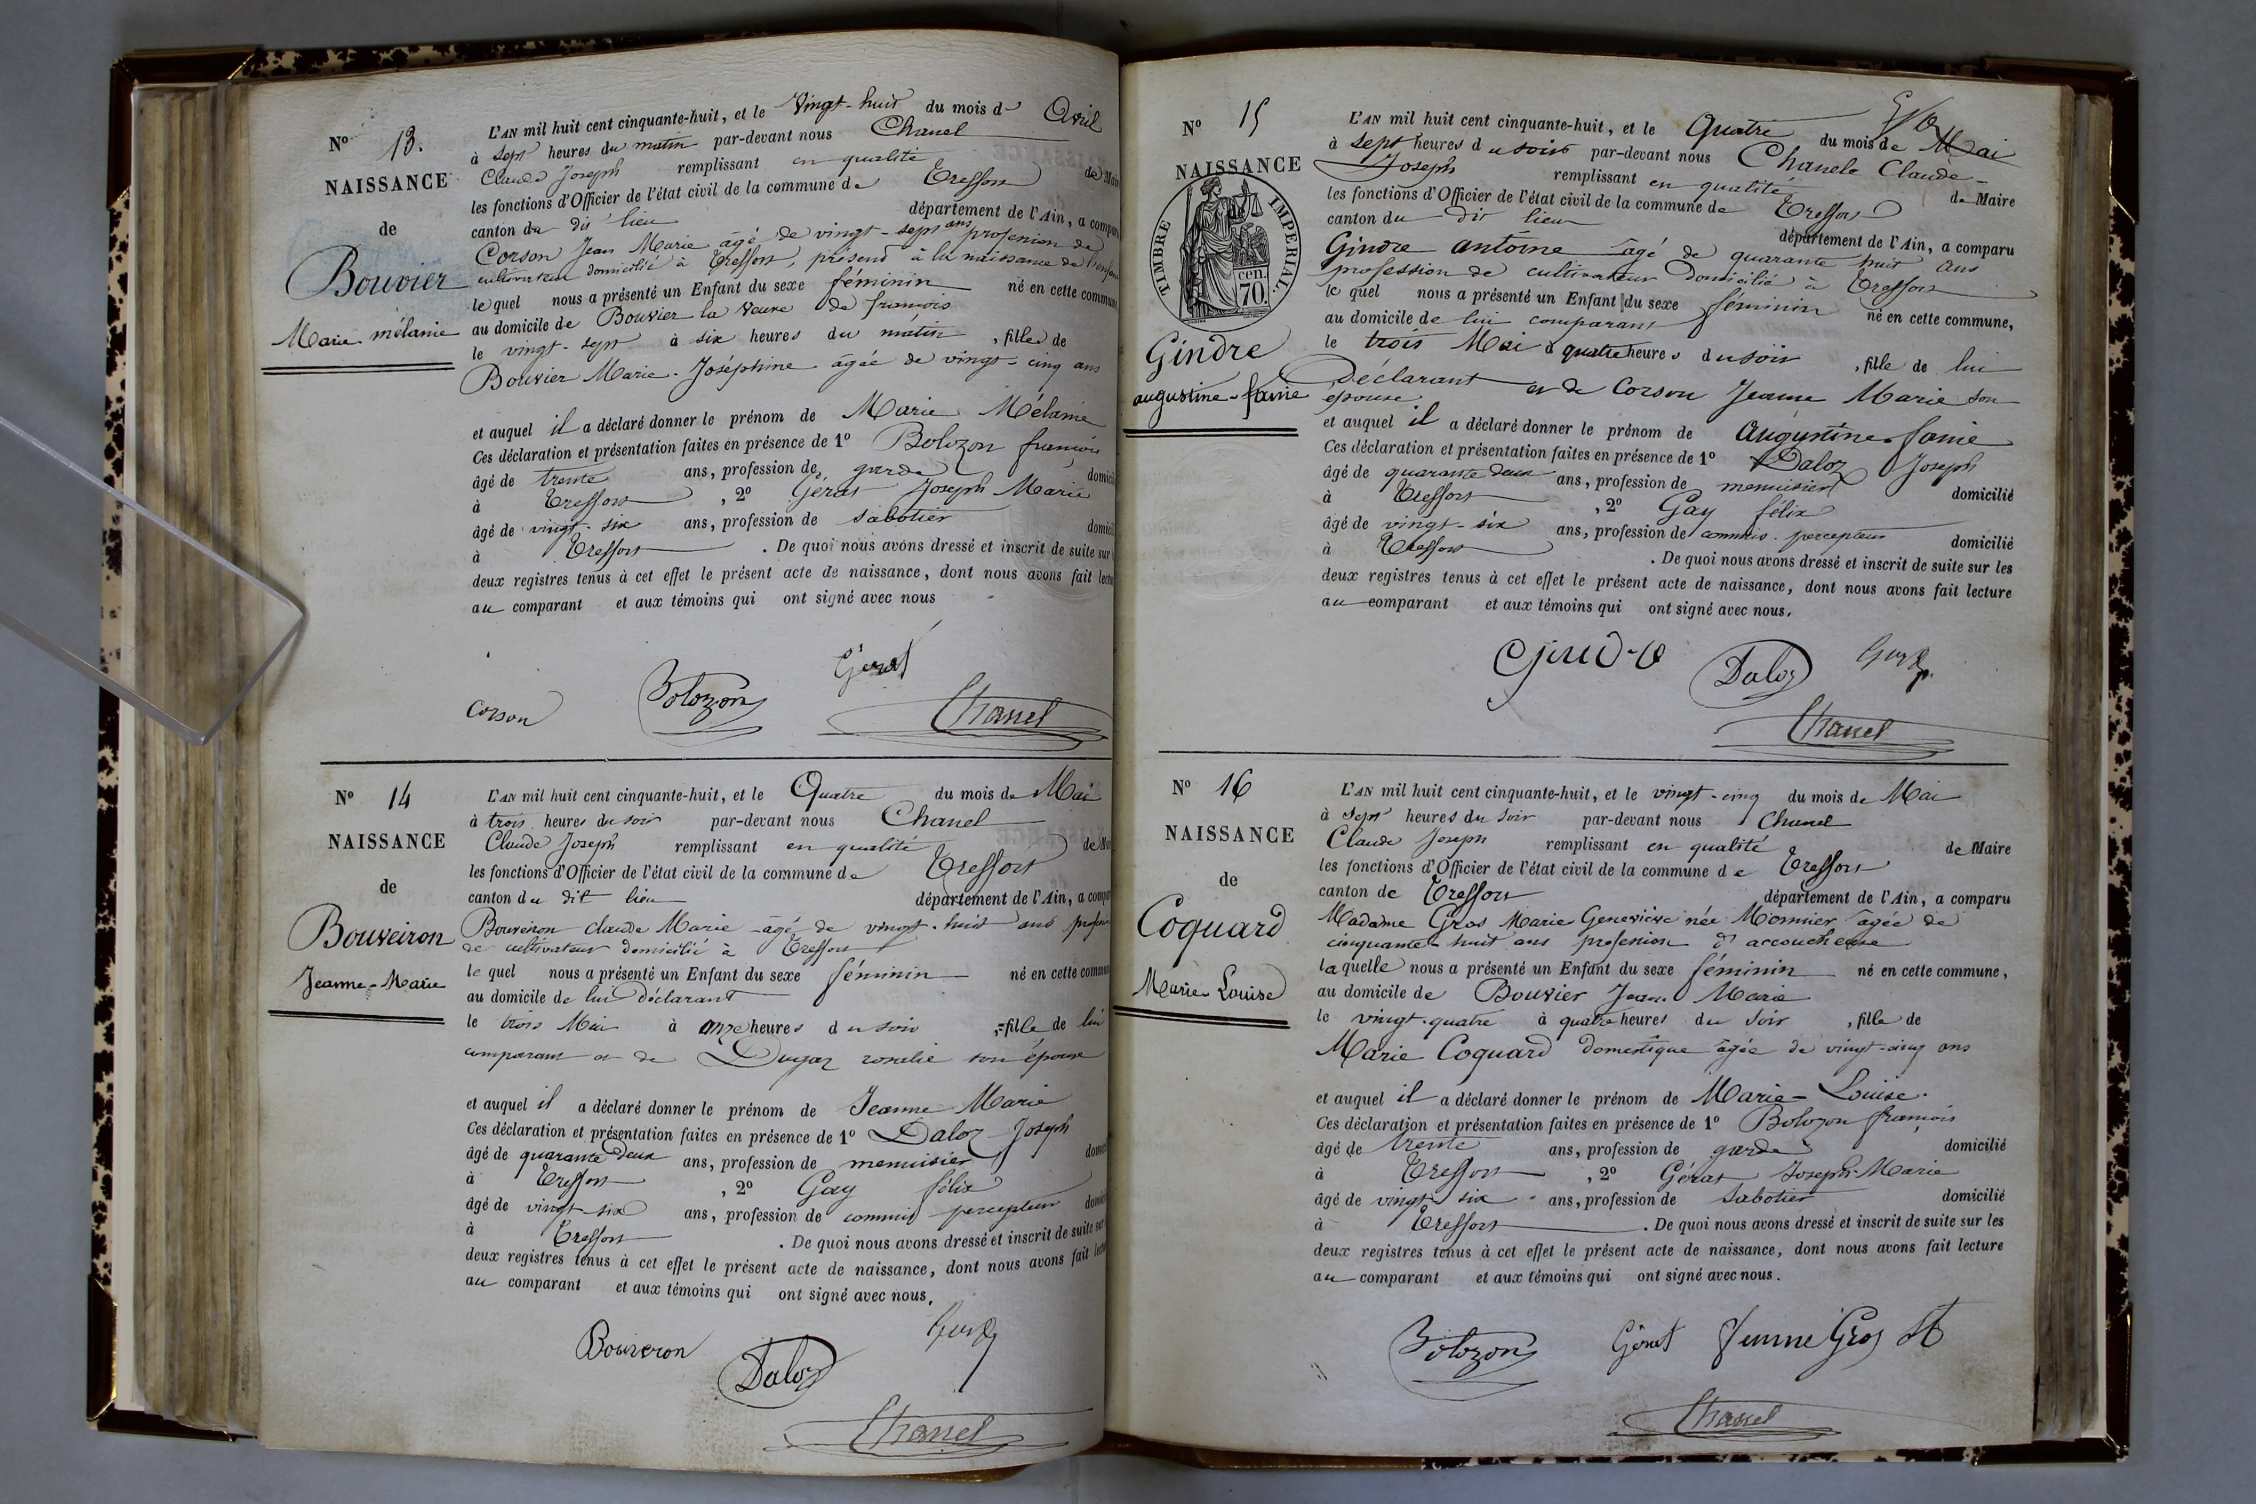 N° 13.
NAISSANCE
de
Bouvier
Marie mélanie
L'AN mil huit cent cinquante-huit, et le Vingt-huit du mois d' Avril
à sept heures du matin par-devant nous Chanel
Claude Joseph remplissant en qualité de Maire
les fonctions d'Officier de l'état civil de la commune de Treffort
canton du dit lieu département de l'Ain, a comparu
Corson Jean Marie âgé de vingt-sept ans profession de
cultivateur domicilié à Treffort, présend à la naissance de l'enfant
le quel nous a présenté un Enfant du sexe féminin né en cette commune
au domicile de Bouvier la veuve de françois
le vingt-sept à six heures du matin, fille de
Bouvier Marie-Joséphine âgée de vingt-cinq ans
et auquel il a déclaré donner le prénom de Marie Mélanie
Ces déclaration et présentation faites en présence de 1° Bolozon françois
âgé de trente ans, profession de garde domicilié
à Treffort, 2° Gérat Joseph Marie
âgé de vingt-six ans, profession de sabotier domicilié
à Treffort. De quoi nous avons dressé et inscrit de suite sur
deux registres tenus à cet effet le présent acte de naissance, dont nous avons fait lecture
au comparant et aux témoins qui ont signé avec nous
Gerat
Corson Bolozon Chanel
N° 14
NAISSANCE
de
Bouveiron
Jeanne-Marie
L'AN mil huit cent cinquante-huit, et le Quatre du mois de Mai
à trois heures du soir par-devant nous Chanel
Claude Joseph remplissant en qualité de Maire
les fonctions d'Officier de l'état civil de la commune de Treffort
canton du dit lieu département de l'Ain, a comparu
Bouveiron claude Marie âgé de vingt-huit ans profession
de cultivateur domicilié à Treffort
le quel nous a présenté un Enfant du sexe féminin né en cette commune
au domicile de lui déclarant
le trois Mai à onze heures du soir, fille de lui
comparant et de Duyar rosalie son épouse
et auquel il a déclaré donner le prénom de Jeanne Marie
Ces déclaration et présentation faites en présence de 1° Daloz Joseph
âgé de quarante deux ans, profession de menuisier domicilié
à Treffort, 2° Gay félix
âgé de vingt-six ans, profession de commis percepteur domicilié
à Treffort. De quoi nous avons dressé et inscrit de suite sur
deux registres tenus à cet effet le présent acte de naissance, dont nous avons fait lecture
au comparant et aux témoins qui ont signé avec nous.
Bouveron Daloz Gay
Chanel
N° 15
NAISSANCE
TIMBRE IMPERIAL.
cen.
70.
Gindre
augustine-fanie
L'AN mil huit cent cinquante-huit, et le Quatre du mois de Mai
à sept heures du soir par-devant nous Chanel Claude-
Joseph remplissant en qualité de Maire
les fonctions d'Officier de l'état civil de la commune de Treffort
canton du dit lieu département de l'Ain, a comparu
Gindre antoine âgé de quarante huit ans
profession de cultivateur domicilié à Treffort
le quel nous a présenté un Enfant du sexe féminin né en cette commune,
au domicile de lui comparant
le trois Mai à quatre heures du soir, fille de lui
Déclarant et de Corson Jeanne Marie son
épouse
et auquel il a déclaré donner le prénom de Augustine-fanie
Ces déclaration et présentation faites en présence de 1° Daloz Joseph
âgé de quarante deux ans, profession de menuisier domicilié
à Treffort, 2° Gay félix
âgé de vingt-six ans, profession de commis-percepteur domicilié
à Treffort. De quoi nous avons dressé et inscrit de suite sur les
deux registres tenus à cet effet le présent acte de naissance, dont nous avons fait lecture
au comparant et aux témoins qui ont signé avec nous.
Daloz Gay
Chanel
N° 16
NAISSANCE
de
Coquard
Marie-Louise
L'AN mil huit cent cinquante-huit, et le vingt-cinq du mois de Mai
à sept heures du soir par-devant nous Chanel
Claude Joseph remplissant en qualité de Maire
les fonctions d'Officier de l'état civil de la commune de Treffort
canton de Treffort département de l'Ain, a comparu
Madame Gros Marie Geneviève née Monnier âgée de
cinquante-huit ans profession d'accoucheuse
laquelle nous a présenté un Enfant du sexe féminin né en cette commune,
au domicile de Bouvier Jean Marie
le vingt-quatre à quatre heures du soir, fille de
Marie Coquard domestique âgée de vingt-cinq ans
et auquel il a déclaré donner le prénom de Marie-Louise.
Ces déclaration et présentation faites en présence de 1° Bolozon françois
âgé de trente ans, profession de garde domicilié
à Treffort, 2° Gérat Joseph-Marie
âgé de vingt-six ans, profession de sabotier domicilié
à Treffort. De quoi nous avons dressé et inscrit de suite sur les
deux registres tenus à cet effet le présent acte de naissance, dont nous avons fait lecture
au comparant et aux témoins qui ont signé avec nous.
Bolozon Gérat femme Gros
Chanel